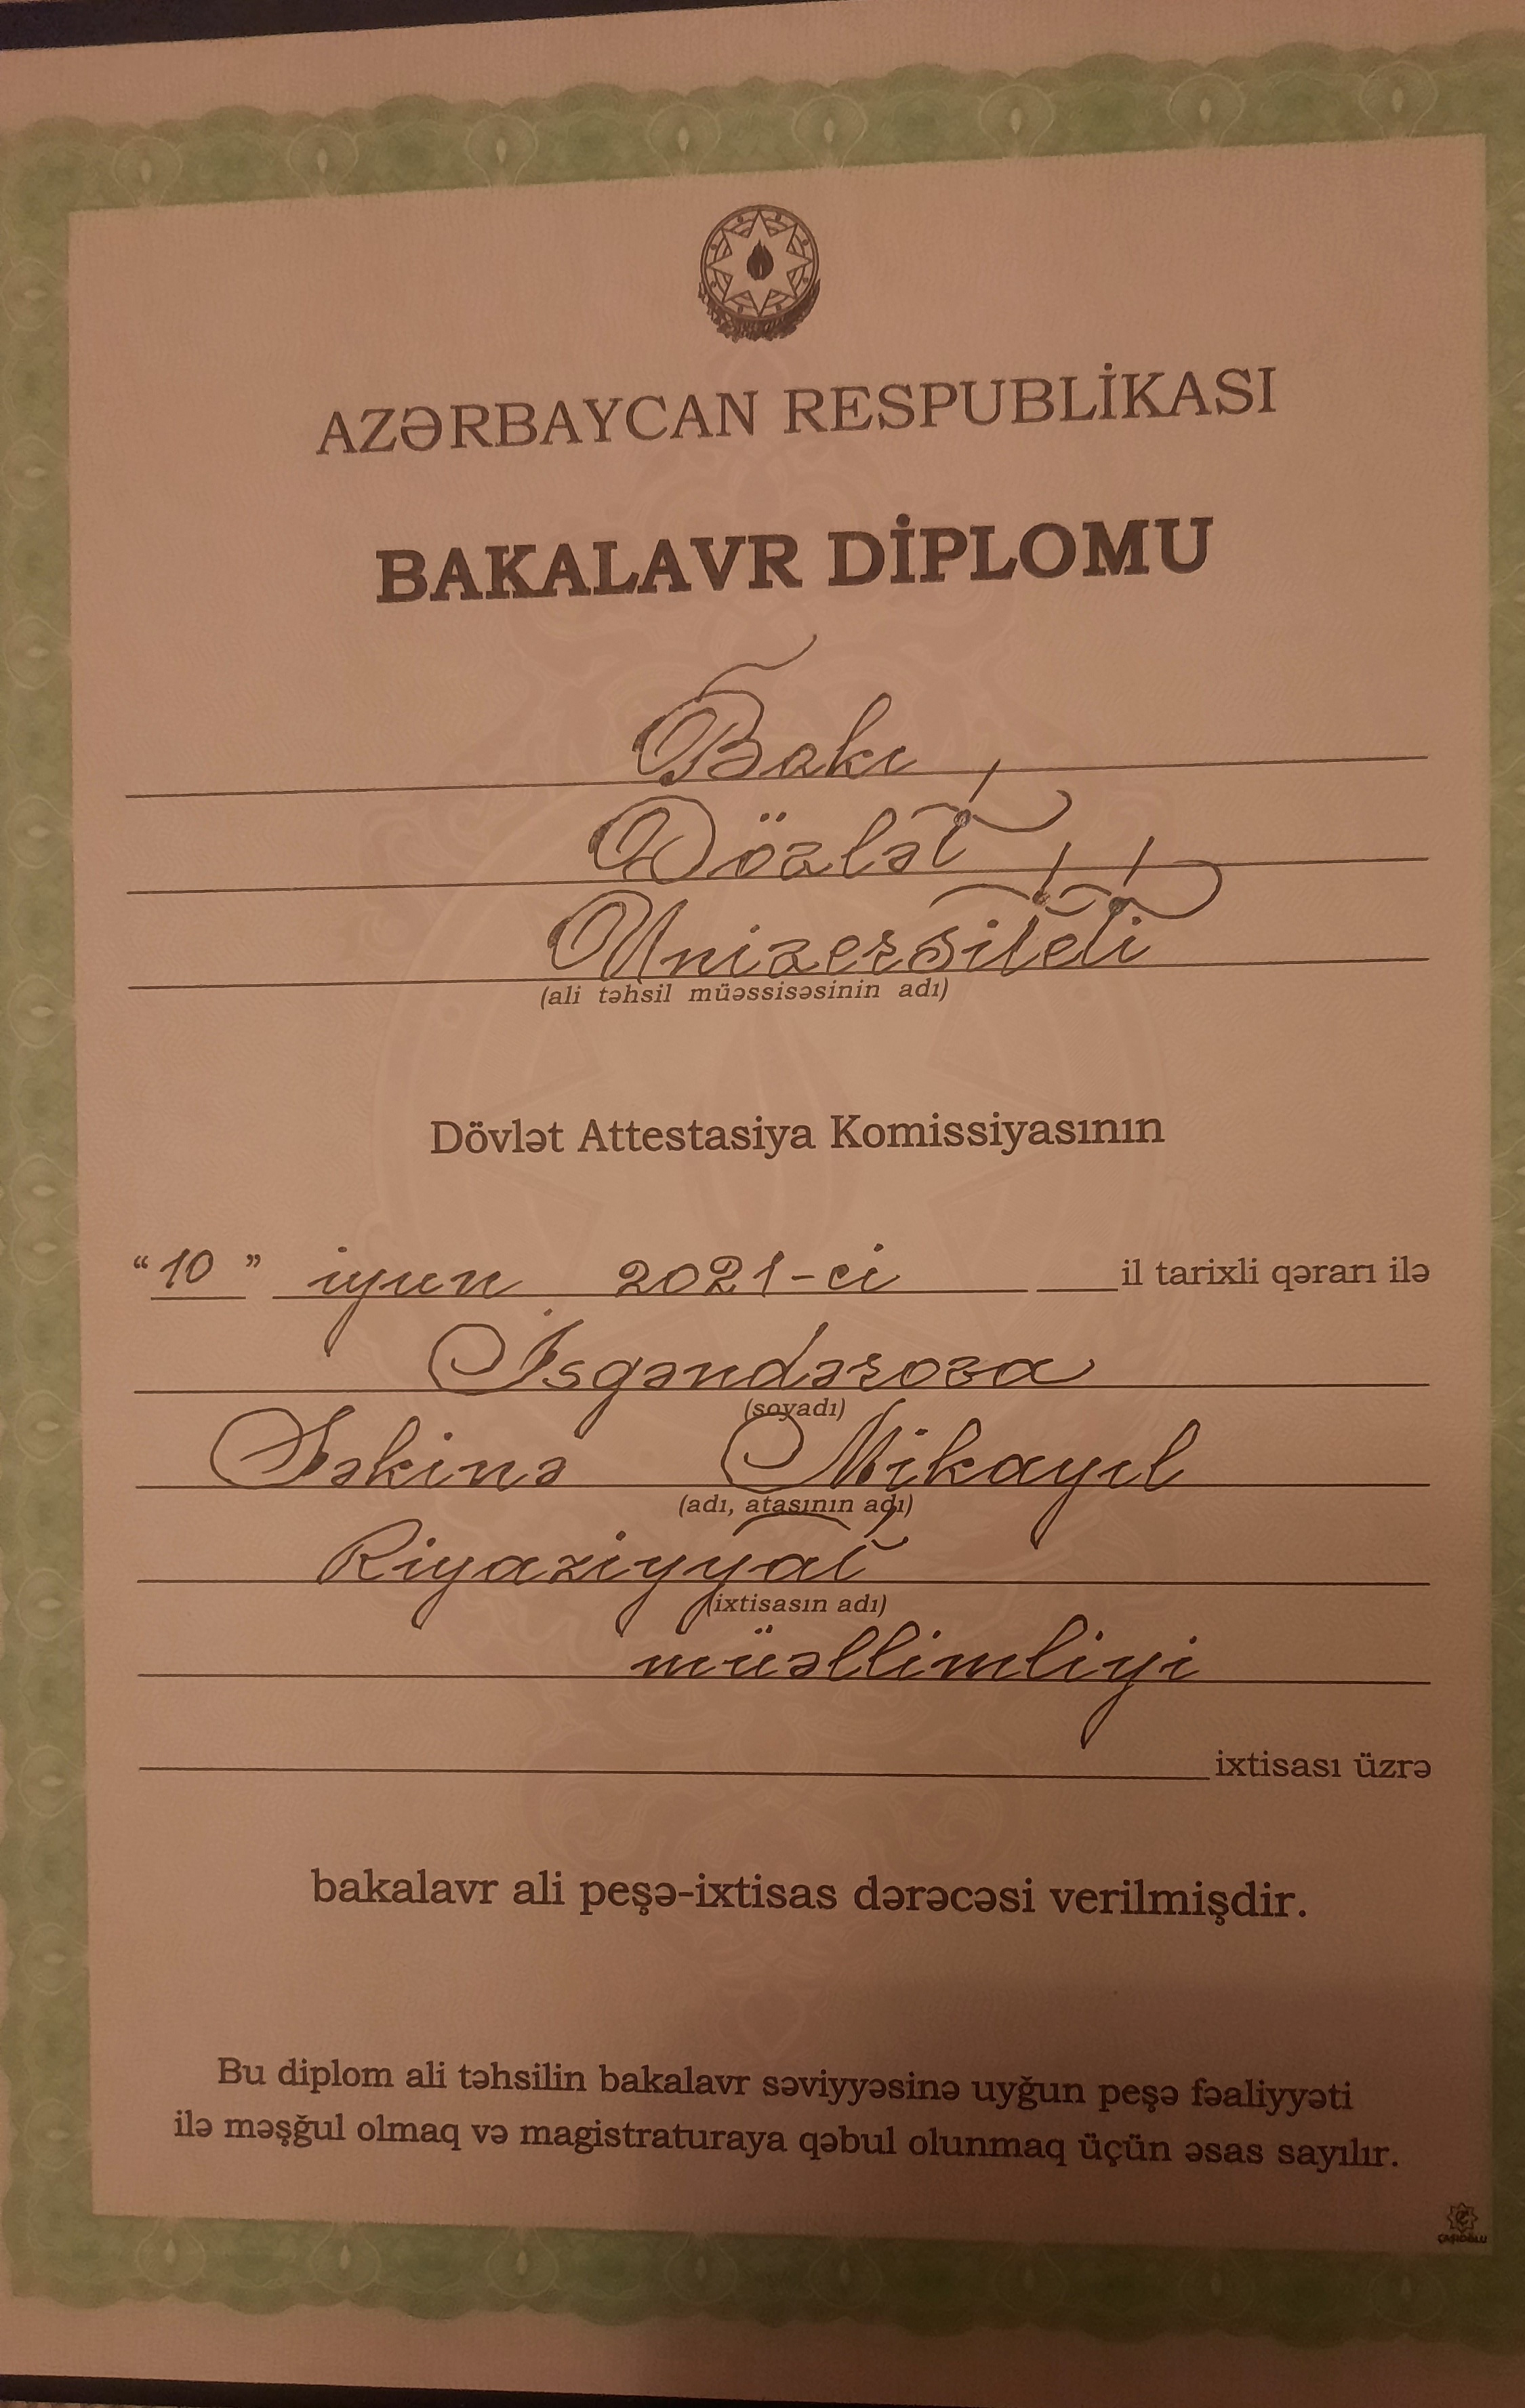 AZƏRBAYCAN RESPUBLİKASI
BAKALAVR DİPLOMU
Bakı
Dövlət
Universiteti
(ali təhsil müəssisəsinin adı)
Dövlət Attestasiya Komissiyasının
“10” iyun 2021-ci il tarixli qərarı ilə
İsgəndərova
(soyadı)
Səkinə Mikayıl
(adı, atasının adı)
Riyaziyyat
(ixtisasın adı)
müəllimliyi
ixtisası üzrə
bakalavr ali peşə-ixtisas dərəcəsi verilmişdir.
Bu diplom ali təhsilin bakalavr səviyyəsinə uyğun peşə fəaliyyəti
ilə məşğul olmaq və magistraturaya qəbul olunmaq üçün əsas sayılır.
ÇAŞIOĞLU